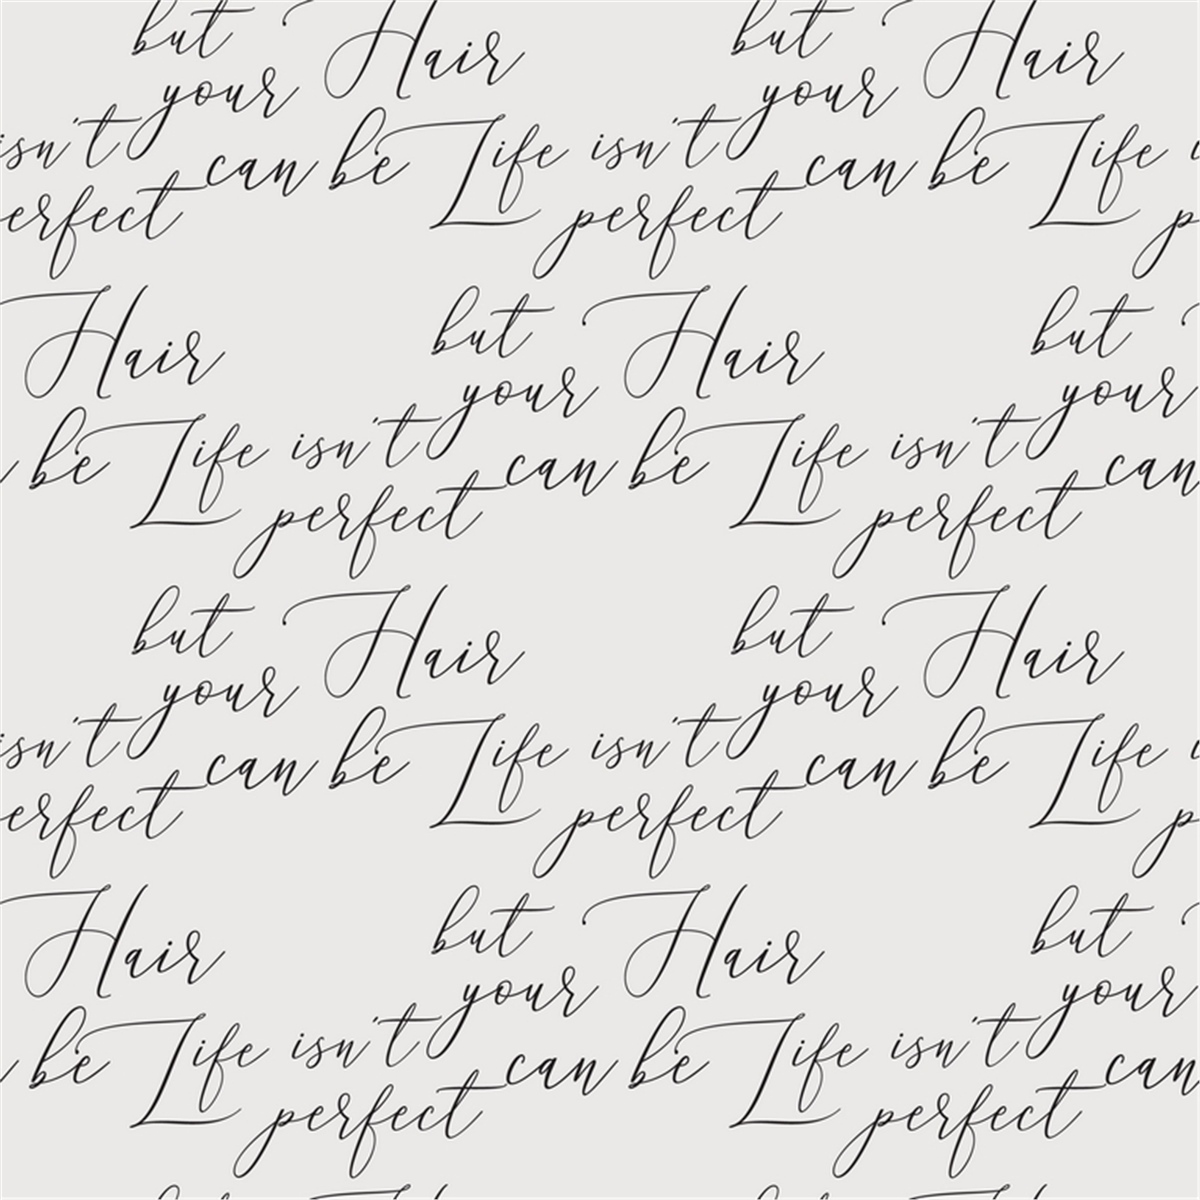 but Hair but Hair
your your
isn't can be Life isn't can be Life i
erfect perfect p
Hair but Hair but
your your
be Life isn't can be Life isn't can
perfect perfect
but Hair but Hair
your your
isn't can be Life isn't can be Life i
erfect perfect p
Hair but Hair but
your your
be Life isn't can be Life isn't can
perfect perfect